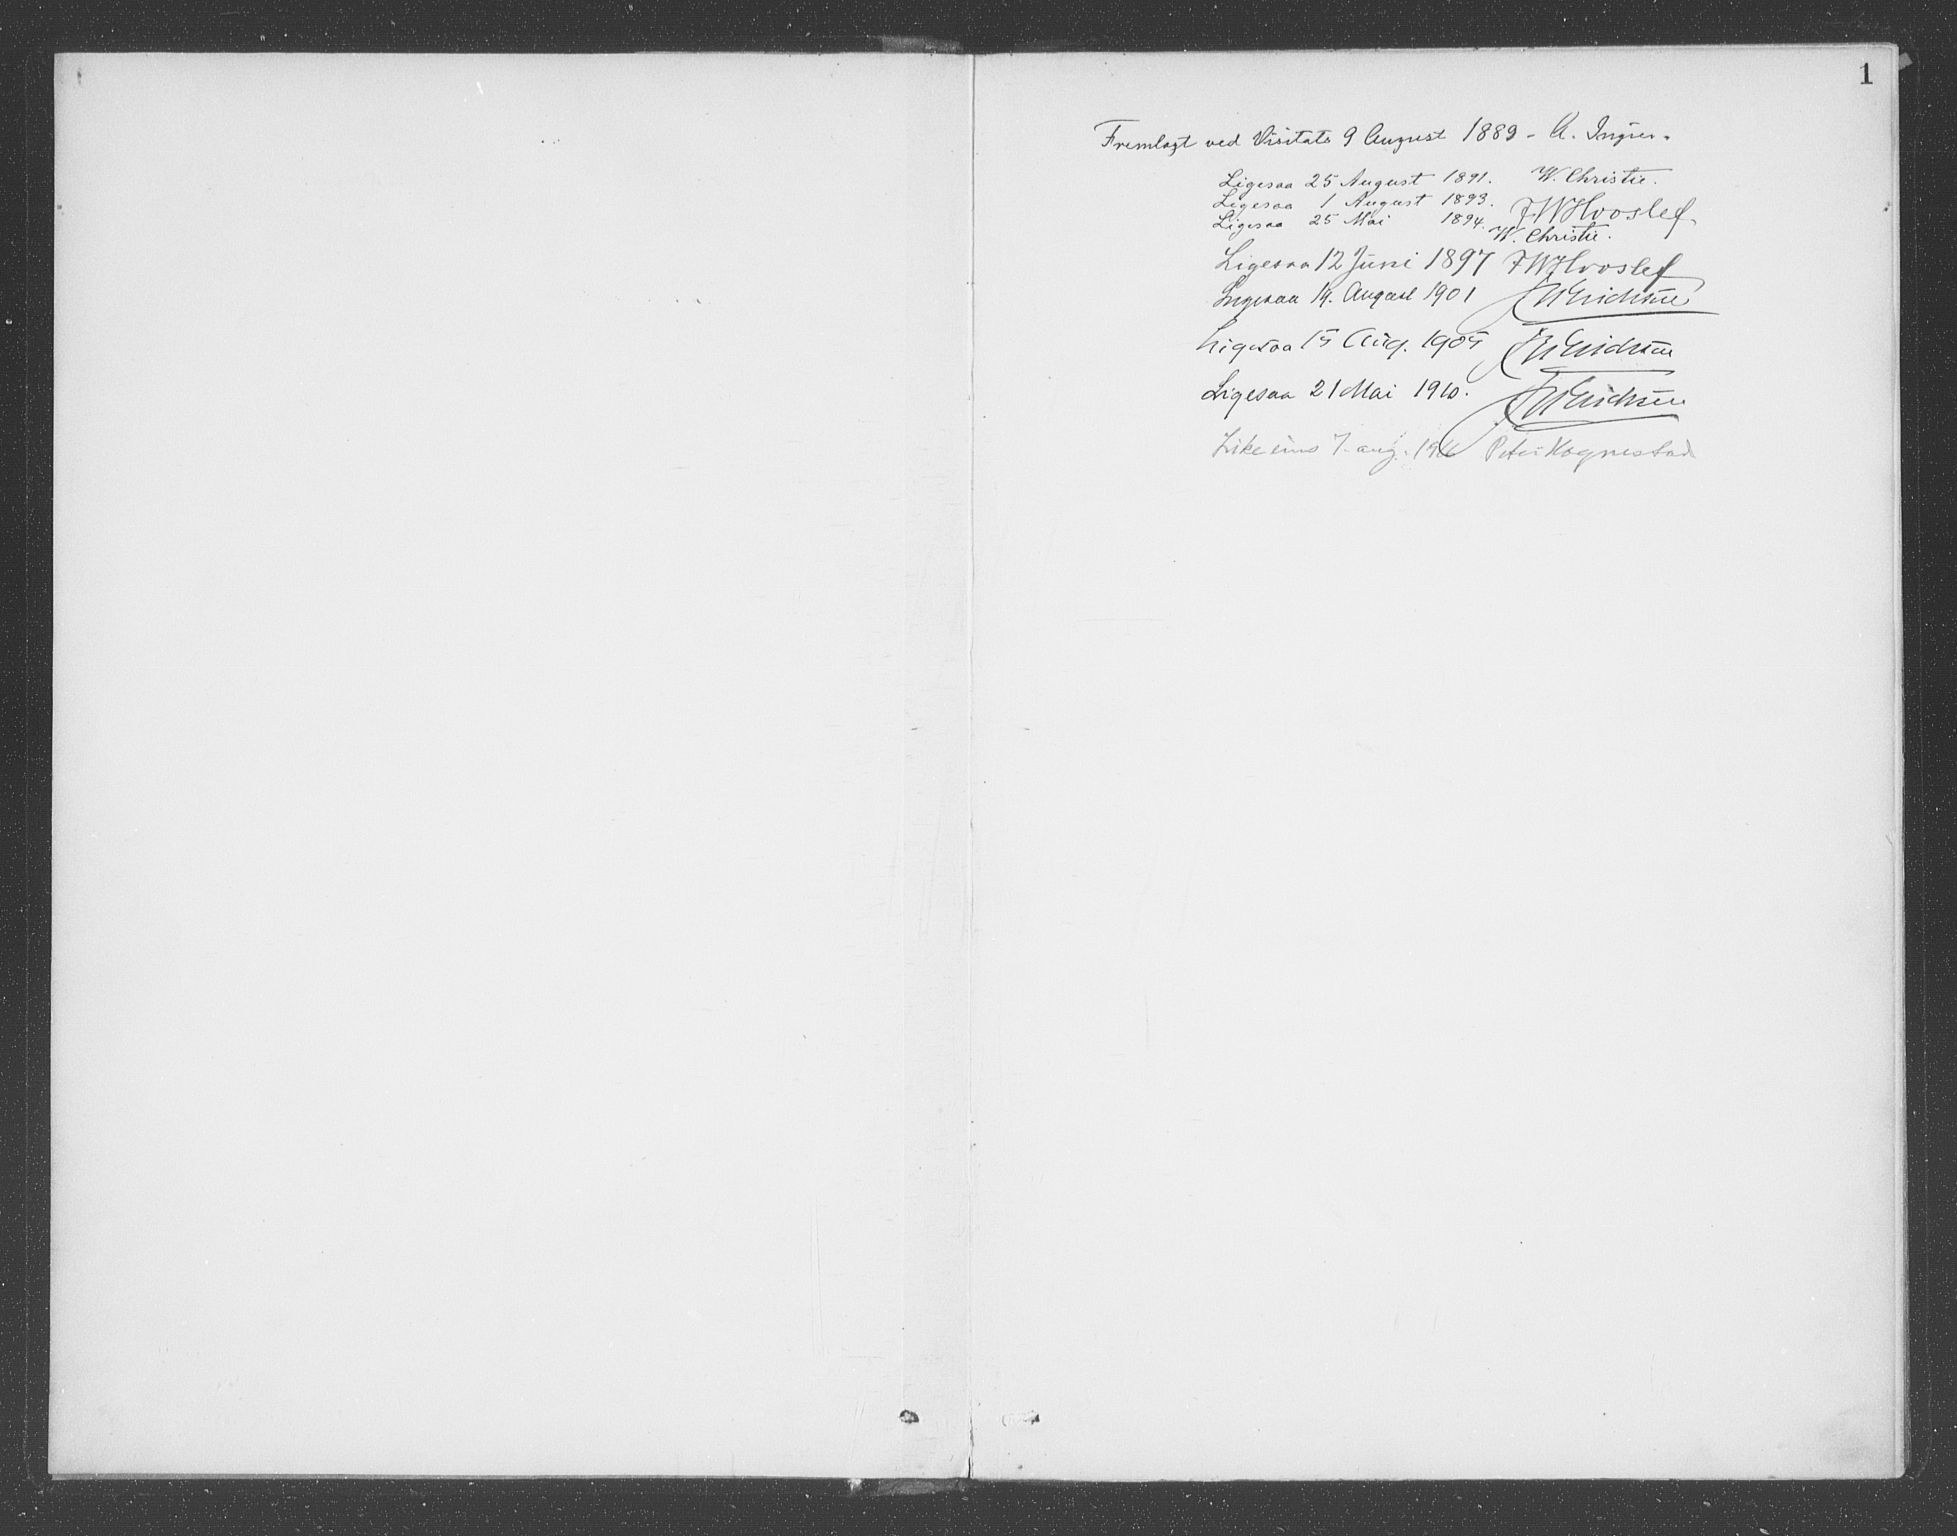 1
Fremlagt ved Visitats 9 August 1889 - A. Ingier.
Ligesaa 25 August 1891. W. Christie.
Ligesaa 1 August 1893. J W Hvoslef.
Ligesaa 25 Mai 1894. W. Christie.
Ligesaa 12 Juni 1897 F W Hvoslef
Ligesaa 19. August 1901
Ligesaa 15 Aug. 1905
Ligesaa 21 Mai 1910.
Likeeins 7. aug. Peter Hognestad